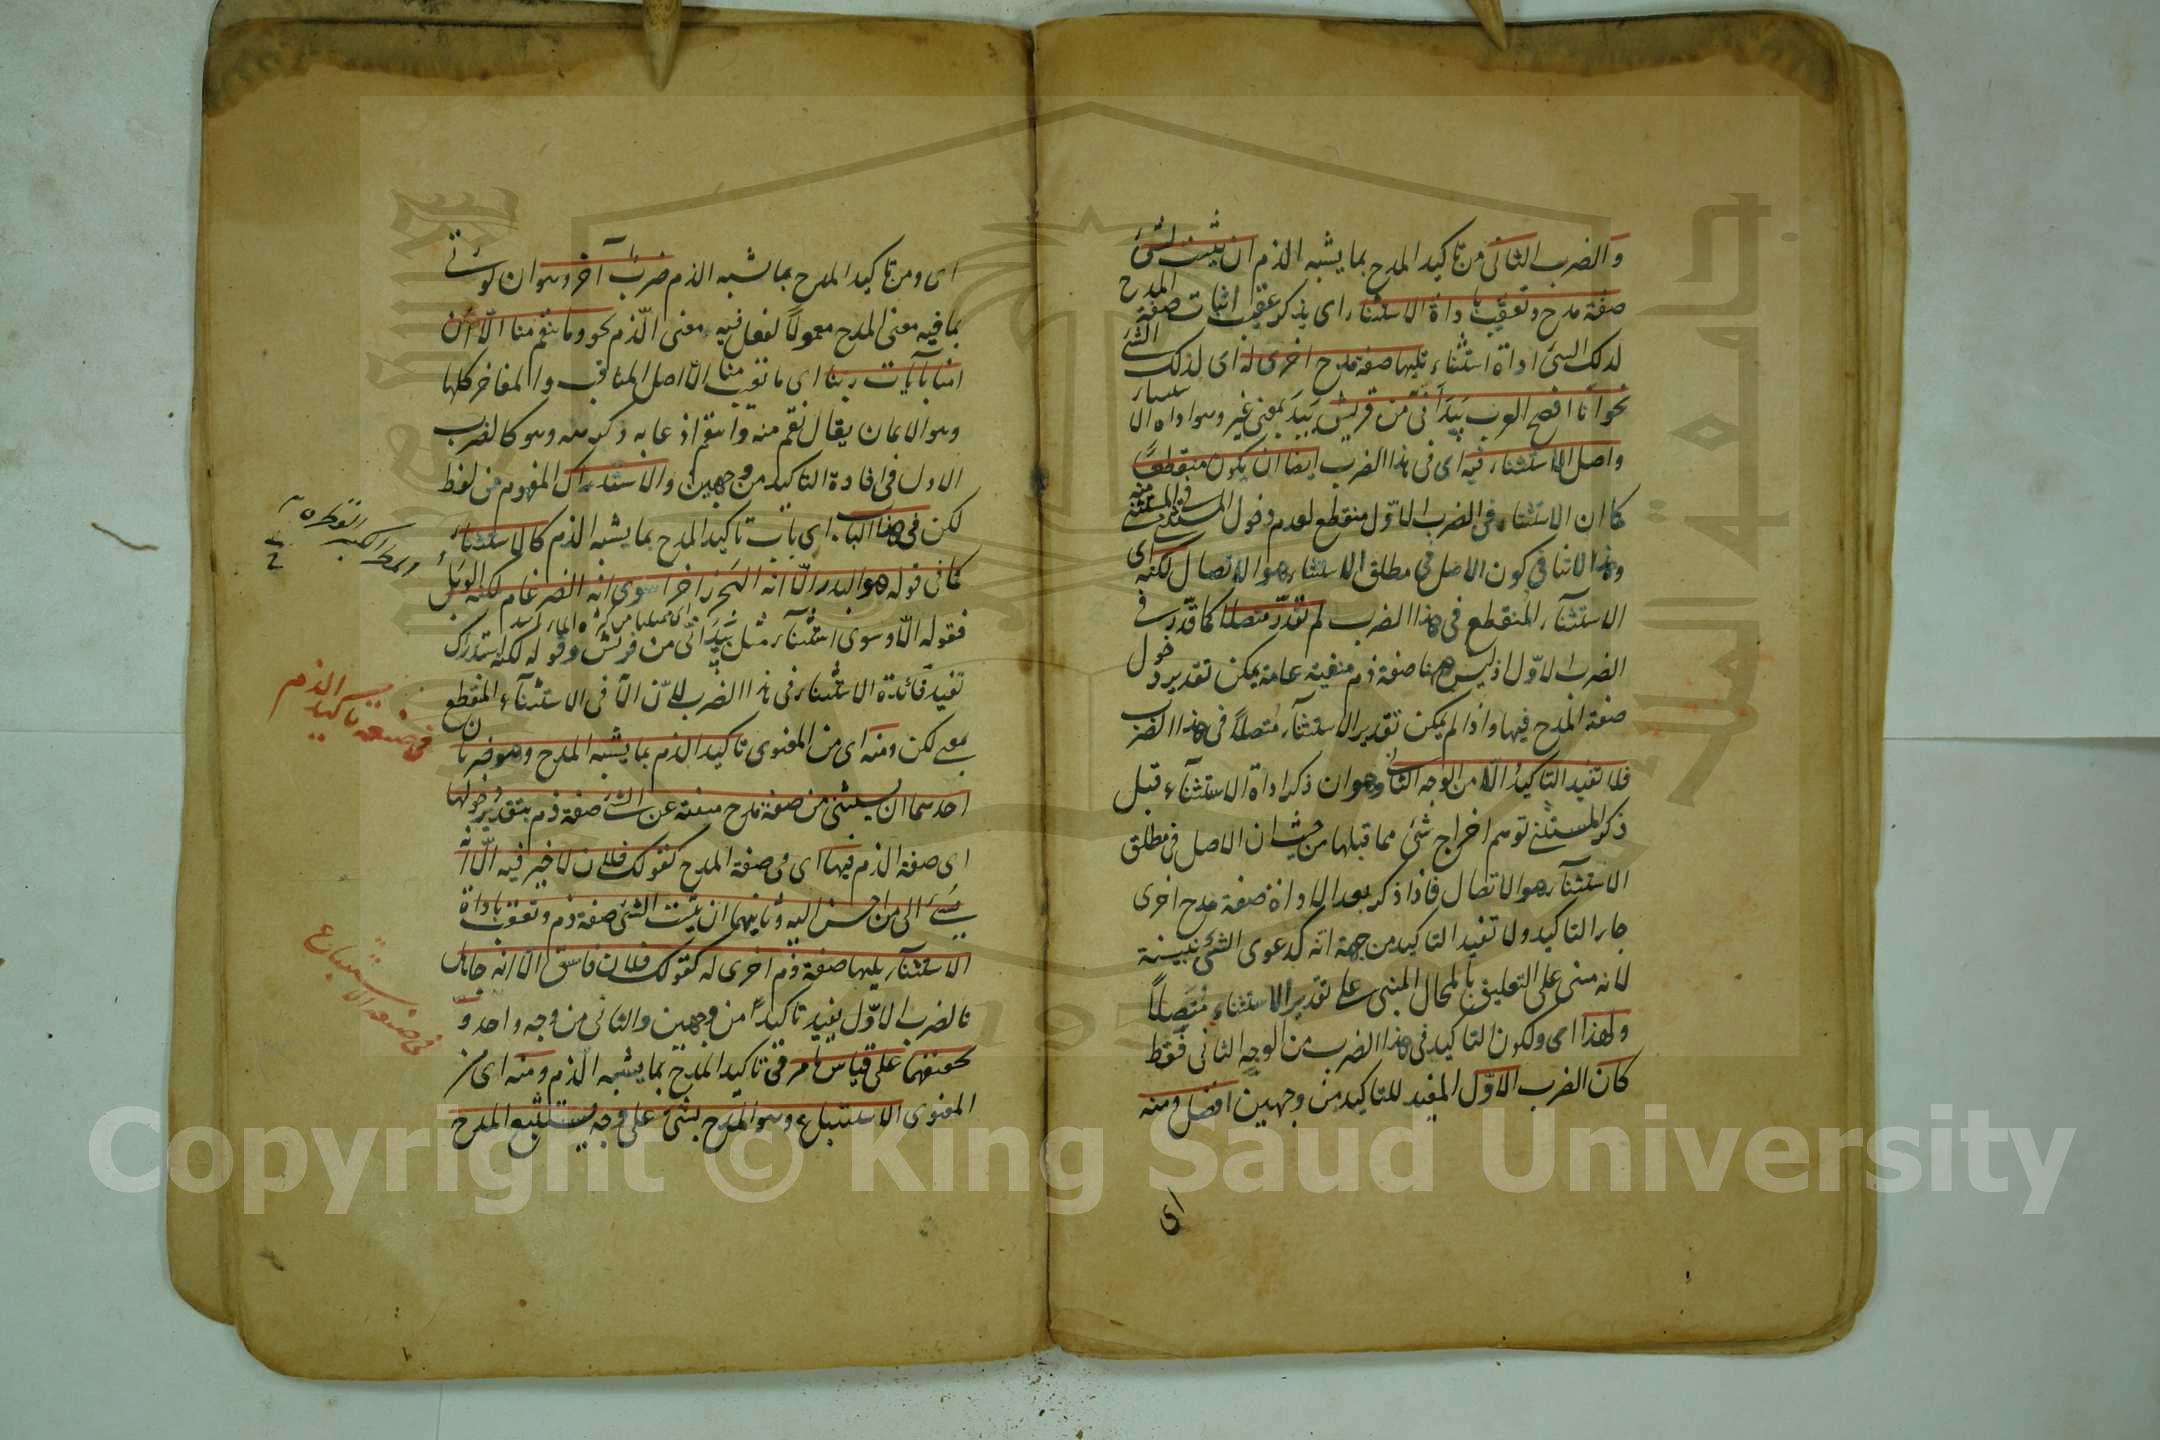 والضرب الثانى من تاكيد المدح بما يشبه الذم ان يثبت لشئ
صفة مدح وتعقيب باداة الاستثناء اى يذكر عقيب اثبات صفة المدح
لذلك الشئ اداة استثناء يليها صفة مدح اخرى له اى لذلك الشئ
نحو انا افصح العرب بيد انى من قريش بيد بمعنى غير وهو اداة الا
واصل الاستثناء فيه اى فى هذا الضرب ايضا ان يكون منقطعا
كما ان الاستثناء فى الضرب الاول منقطع لعدم دخول المستثنى فى المستثنى منه
وهذا لا ينافى كون الاصل فى مطلق الاستثناء هو الاتصال لكنه اى
الاستثناء المنقطع فى هذا الضرب لم يقدر متصلا كما قدر فى
الضرب الاول اذ ليس ههنا صفة ذم منفية عامة يمكن تقدير دخول
صفة المدح فيها واذا لم يمكن تقدير الاستثناء متصلا فى هذا الضرب
فلا تفيد التاكيد الا من الوجه الثانى وهو ان ذكر اداة الاستثناء قبل
ذكر المستثنى توهم اخراج شئ مما قبلها من حيث ان الاصل فى مطلق
الاستثناء هو الاتصال فاذا ذكر بعد الاداة صفة مدح اخرى
جاء التاكيد ولا تفيد التاكيد من جهة انه كدعوى الشئ ببينة
لانه مبنى على التعليق بالمحال المبنى على تقدير الاستثناء متصلا
ولهذا اى ولكون التاكيد فى هذا الضرب من الوجه الثانى فقط
كان الضرب الاول المفيد للتاكيد من وجهين افضل ومنه
اى
اى ومن تاكيد المدح بما يشبه الذم ضرب آخر وهو ان يؤتى
بما فيه معنى المدح معمولا لفعل فيه معنى الذم نحو وما تنقم منا الا ان
امنا بآيات ربنا اى ما تعيب منا الا اصل المناقب والمفاخر كلها
وهو الايمان يقال نقم منه وانتقم اذ عابه وكرهه وهو كالضرب
الاول فى افادة التاكيد من وجهين والاستدراك المفهوم من لفظ
لكن فى هذا الباب اى باب تاكيد المدح بما يشبه الذم كالاستثناء
كما فى قوله هو البدر الا انه البحر زاخرا سوى انه الضرغام لكنه الوبل
فقوله الا وسوى استثناء مثل بيد انى من قريش وقوله لكنه استدراك
تفيد فائدة الاستثناء فى هذا الضرب لان الا فى الاستثناء المنقطع
بمعنى لكن ومنه اى من المعنوى تاكيد الذم بما يشبه المدح وهو ضربان
احدهما ان يستثنى من صفة مدح منفية عن الشئ صفة ذم بتقدير دخولها
اى صفة الذم فيها اى فى صفة المدح كقولك فلان لا خير فيه الا انه
يسئ الى من احسن اليه وثانيهما ان يثبت للشئ صفة ذم وتعقب باداة
الاستثناء يليها صفة ذم اخرى له كقولك فلان فاسق الا انه جاهل
فالضرب الاول يفيد تاكيدا من وجهين والثانى من وجه واحد و
تحقيقهما على قياس ما مر فى تاكيد المدح بما يشبه الذم ومنه اى من
المعنوى الاستتباع وهو المدح بشئ على وجه يستتبع المدح
فى صنعة تاكيد الذم
فى صنعة الاستتباع
Copyright © King Saud University